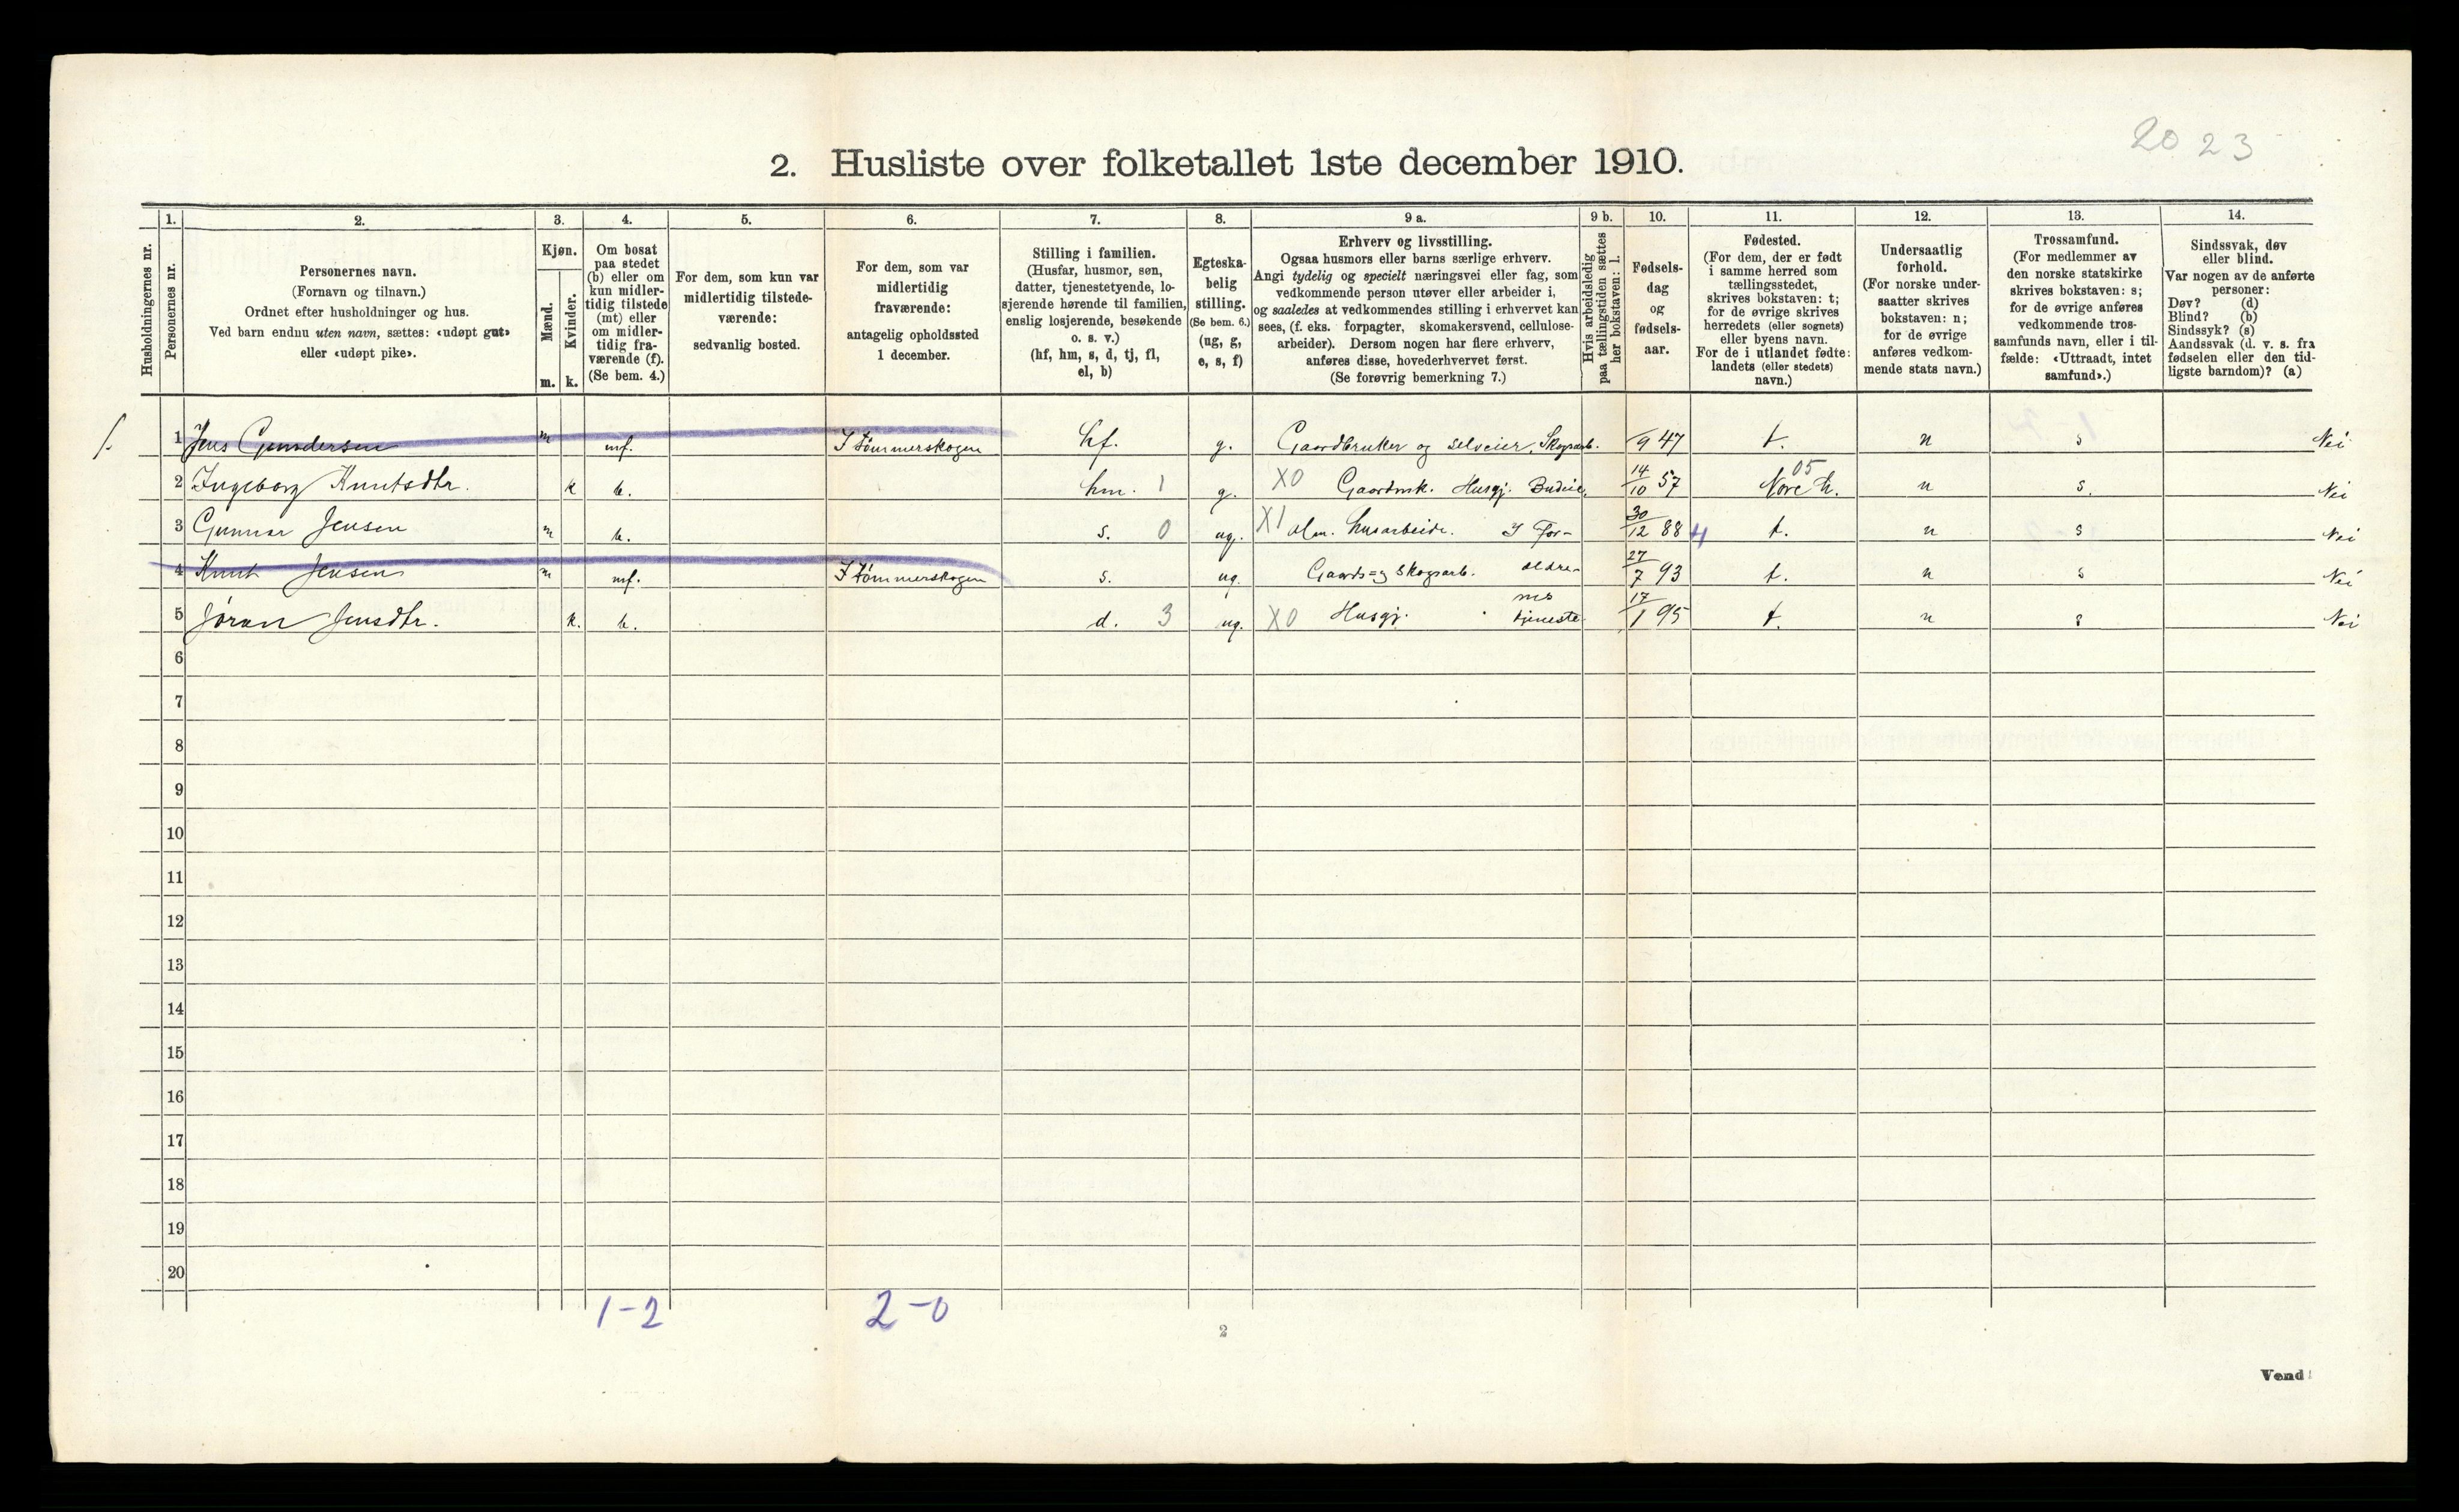 20 23
2. Husliste over folketallet 1ste december 1910.
Husholdningernes nr.
1. Personernes nr.
2. Personernes navn.
(Fornavn og tilnavn.)
Ordnet efter husholdninger og hus.
Ved barn endnu uten navn, sættes: «udøpt gut»
eller «udøpt pike».
3. Kjøn.
Mænd. m.
Kvinder. k.
4. Om bosat
paa stedet
(b) eller om
kun midler-
tidig tilstede
(mt) eller
om midler-
tidig fra-
værende (f).
(Se bem. 4.)
5. For dem, som kun var
midlertidig tilstede-
værende:
sedvanlig bosted.
6. For dem, som var
midlertidig
fraværende:
antagelig opholdssted
1 december.
7. Stilling i familien.
(Husfar, husmor, søn,
datter, tjenestetyende, lo-
sjerende hørende til familien,
enslig losjerende, besøkende
o. s. v.)
(hf, hm, s, d, tj, fl,
el, b)
8. Egteska-
belig
stilling.
(Se bem. 6.)
(ug, g,
e, s, f)
9 a. Erhverv og livsstilling.
Ogsaa husmors eller barns særlige erhverv.
Angi tydelig og specielt næringsvei eller fag, som
vedkommende person utøver eller arbeider i,
og saaledes at vedkommendes stilling i erhvervet kan
sees, (f. eks. forpagter, skomakersvend, cellulose-
arbeider). Dersom nogen har flere erhverv,
anføres disse, hovederhvervet først.
(Se forøvrig bemerkning 7.)
9 b. Hvis arbeidsledig
paa tællingstiden sættes
her bokstaven: l.
10. Fødsels-
dag
og
fødsels-
aar.
11. Fødested.
(For dem, der er født
i samme herred som
tællingsstedet,
skrives bokstaven: t;
for de øvrige skrives
herredets (eller sognets)
eller byens navn.
For de i utlandet fødte:
landets (eller stedets)
navn.)
12. Undersaatlig
forhold.
(For norske under-
saatter skrives
bokstaven: n;
for de øvrige
anføres vedkom-
mende stats navn.)
13. Trossamfund.
(For medlemmer av
den norske statskirke
skrives bokstaven: s;
for de øvrige anføres
vedkommende tros-
samfunds navn, eller i til-
fælde: «Uttraadt, intet
samfund».)
14. Sindssvak, døv
eller blind.
Var nogen av de anførte
personer:
Døv? (d)
Blind? (b)
Sindssyk? (s)
Aandssvak (d. v. s. fra
fødselen eller den tid-
ligste barndom)? (a)
1. 1 Jens Gundersen m mf. I tømmerskogen hf. g. Gaardbruker og selveier, Skogsarb. /9 47 t. n s Nei
2 Ingeborg Knutsdtr. k b. hm. 1 g. X0 Gaardmk. Husgj. Budeie. 14/10 57 05 Nore h. n s. Nei
3 Gunnar Jensen m b. s. 0 ug. X1 Alm. husarbeide. I For- 30/12 88 4 t. n s Nei
4 Knut Jensen m mf. I tømmerskogen s. ug. Gaards= og skogsarb. ældre- 27/7 93 t. n s Nei
5 Jøran Jensdtr. k. b. d. 3 ug. X0 Husgj. nes tjeneste 17/1 95 t. n s Nei
6
7
8
9
10
11
12
13
14
15
16
17
18
19
20
1-2 2-0
2
Vend!